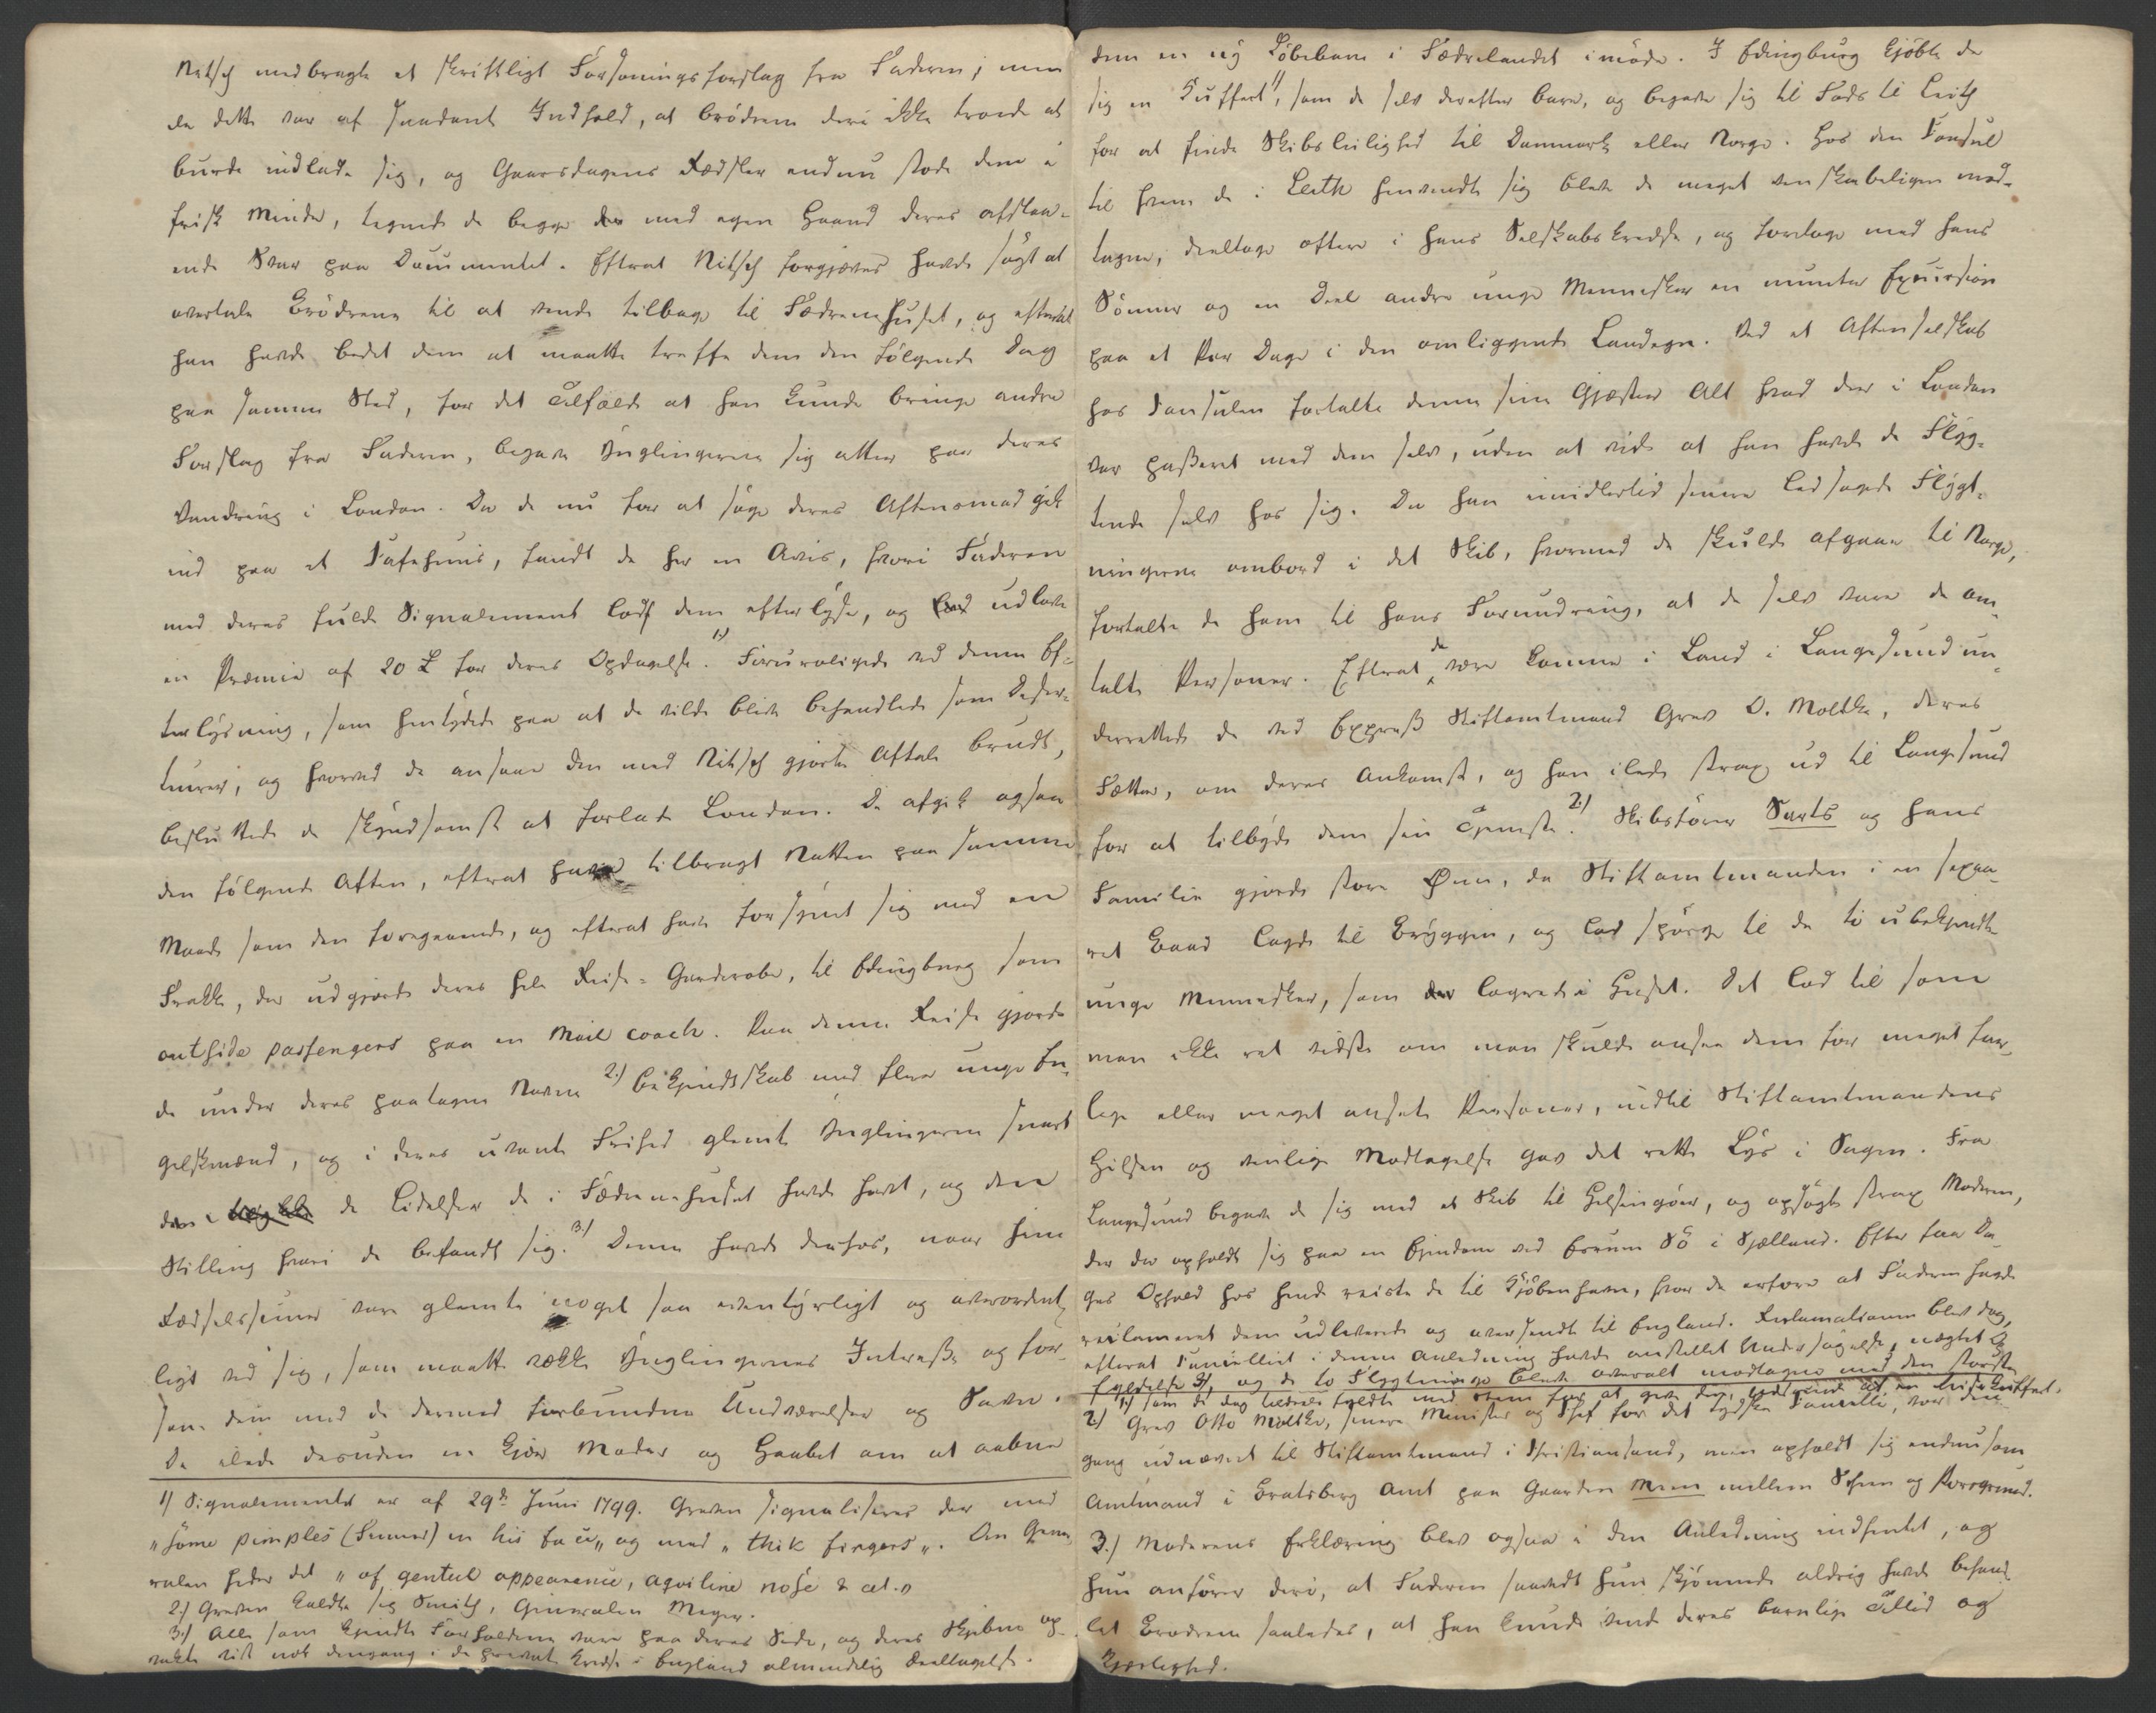 Nitsch medbragte et skriftligt Forsoningsforslag fra Faderen; men
da dette var af saadant Indhold, at Brödrene deri ikke troede at
burde indlade sig, og Gaarsdagens Rædsler endnu stode dem i
frisk Minde, tegnede de begge med egen Haand deres afslaa-
ende Svar paa Documentet. Efterat Nitsch forgjæves havde sögt at
overtale Brödrene til at vende tilbage til Fædrenehuset, og efterat
han havde bedet dem at maatte træffe dem den fölgende Dag
paa samme Sted, for det Tilfælde at han kunde bringe andre
Forslag fra Faderen, begave Ynglingerne sig atter paa deres
Vandring i London. Da de nu for at söge deres Aftensmad gik
ind paa et Kafehuus, fandt de her en Avis, hvori Faderen
med deres fulde Signalement lod dem efterlyse, og udlove
en Præmie af 20 £ for deres Opdagelse. 1.) Foruroligede ved denne Ef-
terlysning, som hentydede paa at de vilde blive behandlede som Deser-
teurer, og hvorved de ansaae den med Nitsch gjorte Aftale brudt,
besluttede de skyndsomst at forlade London. De afgik ogsaa
den fölgende Aften, efterat have tilbragt Natten paa samme
Maade som den foregaaende, og efterat have forsynet sig med en
Frakke, der udgjorde deres hele Reise-Garderobe, til Edingburg som
outside passengers paa en Mail coach. Paa denne Reise gjorde
de under deres paatagne Navne 2.) bekjendtskab med flere unge En-
gelskmænd, og i deres uvante Frihed glemte Ynglingerne snart
de Lidelser de i Fædrenehuset havde havt, og den
Stilling hvori de befandt sig. 3.) Denne havde desuden, naar hine
Rædselsscener vare glemte noget saa eventyrligt og overordent-
ligt ved sig, som maatte vække Ynglingernes Interesse og for-
sone dem med de dermed forbundne Undværelser og Savn.
De ilede desuden en kjær Moder og Haabet om at aabne
1) Signalementet er af 29de Juni 1799. Greven signaliseres der med
"some pimples (Finner) in his face" og med "thik fingers". Om Gene-
ralen heder det "of genteel appearance, aqviline nose & cet."
2.) Greven kaldte sig Smith, Generalen Meyer.
3.) Alle som kjendte Forholdene vare paa deres Side, og deres Skjebne op-
vakte vist nok dengang i de private Kredse i England almindelig Deeltagelse.
dem en ny Löbebane i Fædrelandet imöde. I Edingburg kjöbte de
sig en Kuffert 1), som de selv derefter bare, og begave sig til Fods til Leith
for at finde Skibsleilighed til Danmark eller Norge. Hos den Konsul
til hvem de i Leith henvendte sig bleve de meget venskabeligen mod-
tagne, deeltoge oftere i hans Selskabskredse, og foretoge med hans
Sönner og en Deel andre unge Mennesker en munter Excursion
paa et Par Dage i den omliggende Landegn. Ved et Aftenselskab
hos Konsulen fortalte denne sine Gjæster Alt hvad der i London
var passeret med dem selv, uden at vide at han havde de Flyg-
tende selv hos sig. Da han imidlertid senere ledsagede Flygt-
ningerne ombord i det Skib, hvormed de skulde afgaae til Norge,
fortalte de ham til hans Forundring, at de selv vare de om-
talte Personer. Efterat de vare komne i Land i Langesund un-
derrettede de ved Expres Stiftamtmand Grev O. Moltke, deres
Fætter, om deres Ankomst, og han ilede strax ud til Langesund
for at tilbyde dem sin Tjeneste. 2.) Skibsförer Sarts og hans
Familie gjorde store Öine, da Stiftamtmanden i en sexaa-
ret Baad lagde til Bryggen, og lod spörge til de to ubekjendte
unge Mennesker, som logerede i Huset. Det lod til som
man ikke ret vidste om man skulde ansee dem for meget far-
lige eller meget ansete Personer, indtil Stiftamtmandens
Hilsen og venlige Modtagelse gav det rette Lys i Sagen. Fra
Langesund begave de sig med et Skib til Helsingöer, og opsögte strax Moderen,
der da opholdt sig paa en Eiendom ved Esrum Sö i Sjælland. Efter faa Da-
ges Ophold hos hende reiste de til Kjöbenhavn, hvor de erfore at Faderen havde
reclameret dem udleverede og oversendte til England. Reclamationen blev dog,
efterat Cancelliet i denne Anledning havde anstillet Undersögelse, nægtet
Fyldelse 3), og de to Flygtninge bleve overalt modtagne med den störste
1.) som de dog tildeels fyldte med Steen for at give den Udseende af en Reisekuffert.
2) Grev Otto Moltke, senere Minister og Chef for det tydske Cancellie, var den-
gang udnævnt til Stiftamtmand i Christiansand, men opholdt sig endnu som
Amtmand i Bratsberg Amt paa Gaarden Mæen mellem Schien og Porsgrund.
3.) Moderens Erklæring blev ogsaa i den Anledning indhentet, og
hun anförer deri, at Faderen saavidt hun skjönnede aldrig havde behand-
let Brödrene saaledes, at han kunde vinde deres barnlige Tillid og
Kjærlighed.